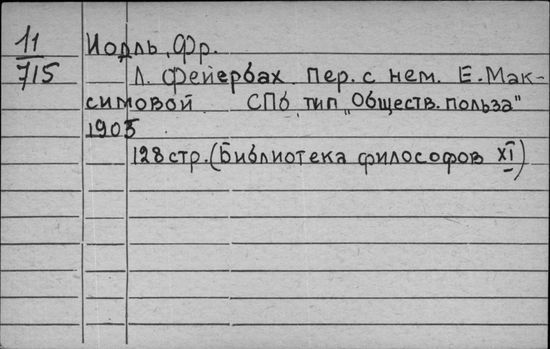 11 Иодль, Фр.
715 Л. Фейербах. Пер. с нем. Е. Мак-
симовой СПб, тип „Обществ. польза"
1905
128 стр. (Библиотека философов XI)